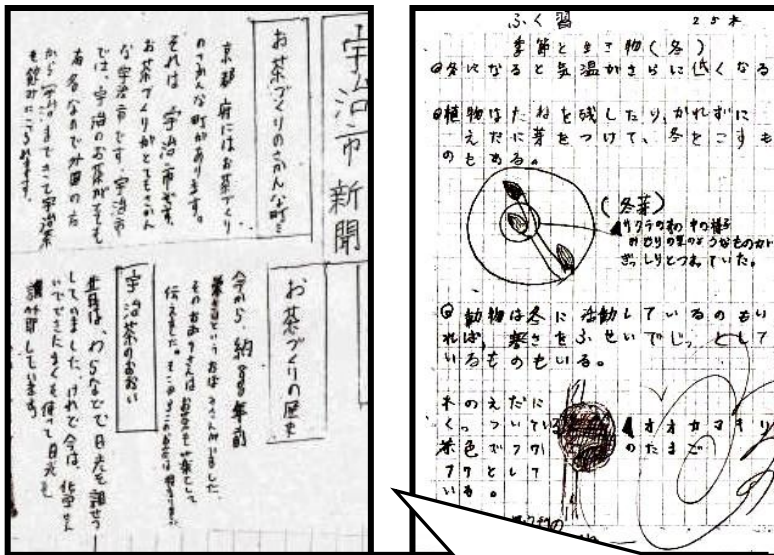 宇治市新聞
お茶づくりのさかんな町
京都府にはお茶づくり
のさかんな町があります。
それは宇治市です。
お茶づくりがとてもさかん
な宇治市です。宇治市
では、宇治のお茶がとても
有名なので外国の方
から
お茶づくりの歴史
今から、約800年前
宇治茶のおおい
昔は、わらなどで日光を調せつ
していました。けれど今は、化学せん
いでできたまくを使って日光を
調節しています。
ふく習
季節と生き物(冬)
◎冬になると気温がさらに低くなる
◎植物はたねを残したり、かれずに
えだに芽をつけて、冬をこすも
のもある。
(冬芽)
サクラの木の中の様子
ぎっしりとつまっていた。
◎動物は冬に活動しているのもい
れば、寒さをふせいでじっとして
いるものもいる。
木のえだに
くっついている
茶色でフカ
フカとして
いる。
▲オオカマキリ
のたまご